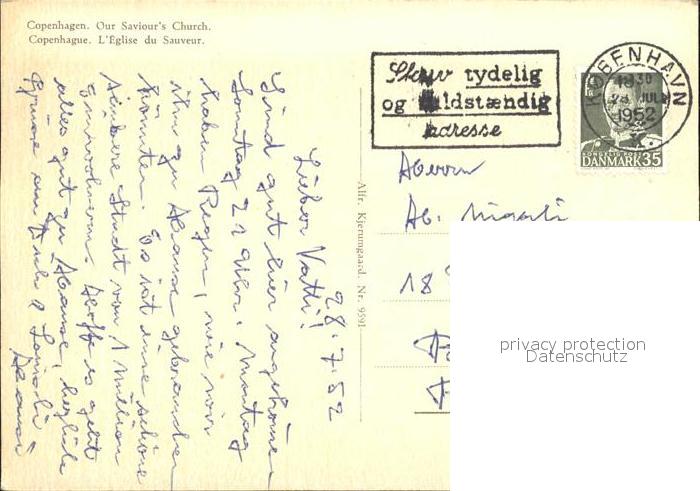 Copenhagen. Our Saviour's Church.
Copenhague. L'Église du Sauveur.
Skriv tydelig
og fuldstændig
adresse
KØBENHAVN
1952
DANMARK 35
Alfr. Kjerumgaard. Nr. 9591
28.7.52
Lieber Vatti!
Sind gut hier angekommen
Sonntag 21 Uhr. Montag
haben Regen, wie wir
ihn zu Hause gebrauchen
könnten. Es ist eine schöne
saubere Stadt von 1 Million
Einwohnern. Hoffe es geht
alles gut zu Hause, herzliche
Grüsse an Dich
Herrn
18
privacy protection
Datenschutz